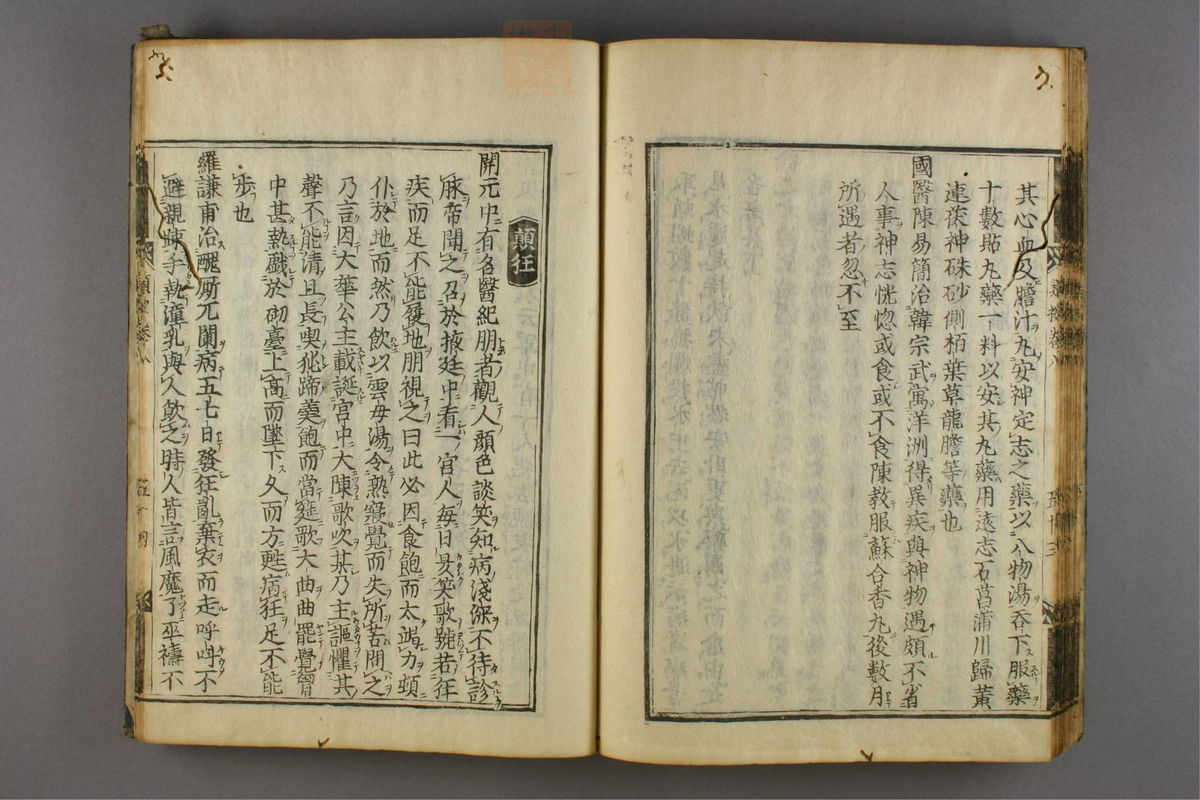 其心血及膽汁丸安神定志之藥以八物湯吞下服藥
十數貼丸藥一料以安其丸藥用遠志石菖蒲川歸黃
連茯神硃砂側栢葉草龍膽等藥也
國醫陳易簡治韓宗武寓洋洲得異疾與神物遇頗不省
人事神志恍惚或食或不食陳教服蘇合香丸後數月
所遇者忽不至
顛狂
開元中有名醫紀朋者觀人顏色談笑知病淺深不待診
脉帝聞之召於掖廷中看一官人每日昃笑歌號若狂
疾而足不能履地朋視之曰此必因食飽而太竭力頓
仆於地而然乃飲以雲母湯令熟寢覺而失所苦問之
乃言因大華公主載誕宮中大陳歌吹某乃主謳懼其
聲不能清且長喫㹠蹄羹飽而當筵歌大曲曲罷覺胷
中甚熱戲於砌臺上高而墜下久而方甦病狂足不能
步也
羅謙甫治醜厮兀闌病五七日發狂亂棄衣而走呼呌不
避親疎手執湩乳與人飲之時人皆言風魔了巫禱不